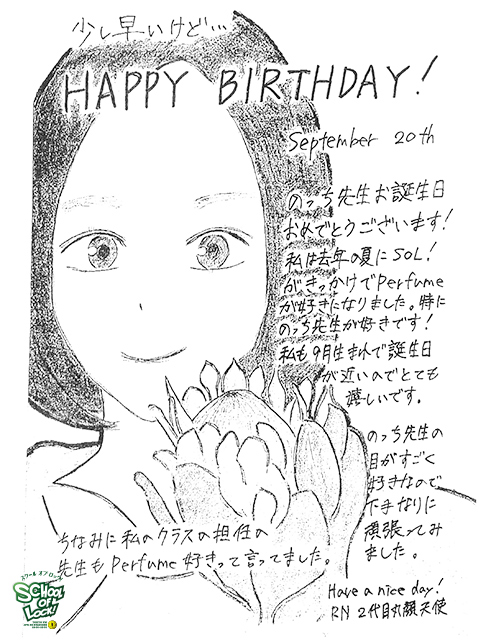 少し早いけど…
HAPPY BIRTHDAY!
September 20th
のっち先生お誕生日
おめでとうございます!
私は去年の夏にSOL!
がきっかけでPerfume
が好きになりました。特に
のっち先生が好きです!
私も9月生まれで誕生日
が近いのでとても
嬉しいです。
のっち先生の
目がすごく
好きなので
下手なりに
頑張ってみ
ました。
ちなみに私のクラスの担任の
先生もPerfume好きって言ってました。
Have a nice day!
RN 2代目丸顔天使
スクール オブ ロック!
SCHOOL
OF
LOCK!